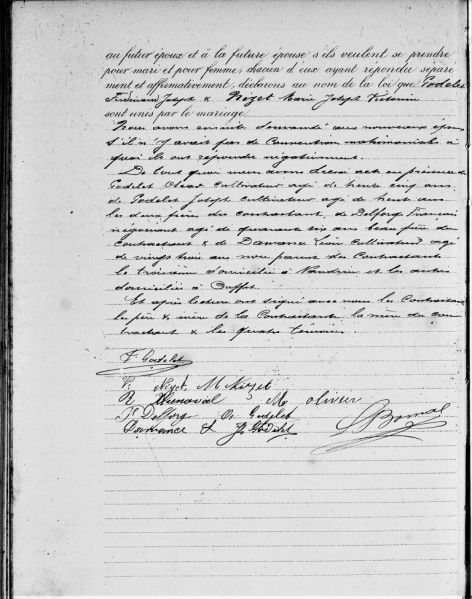 au futur époux et à la future épouse s'ils veulent se prendre
pour mari et pour femme, chacun d'eux ayant répondu séparé
ment et affirmativement, déclarons au nom de la loi que Godelet
Ferdinand Joseph & Nozet Marie Joseph Victorine
sont unis par le mariage.
Nous avons ensuite demandé aux nouveaux époux
s'il n'y avait pas de Convention matrimoniale à
quoi ils ont répondu négativement.
De tout quoi nous avons dressé acte en présence de
Godelet Oscar Cultivateur agé de trente cinq ans
de Godelet Joseph Cultivateur agé de trente ans
les deux frères du contractant, de Delforge François
négociant agé de quarante six ans beau frère du
contractant & de Damanne Cultivateur agé
de vingt trois ans non parent des Contractants
le troisième domicilié à Nandrin et les autres
domiciliés à Ouffet.
Et après lecture ont signé avec nous les Contractants
les père & mère de la Contractante la mère du con
tractant & les quatre témoins.
F. Godelet
Nozet M Nozet
M Olivier
Delforge Os Godelet
J. Godelet
Bonal